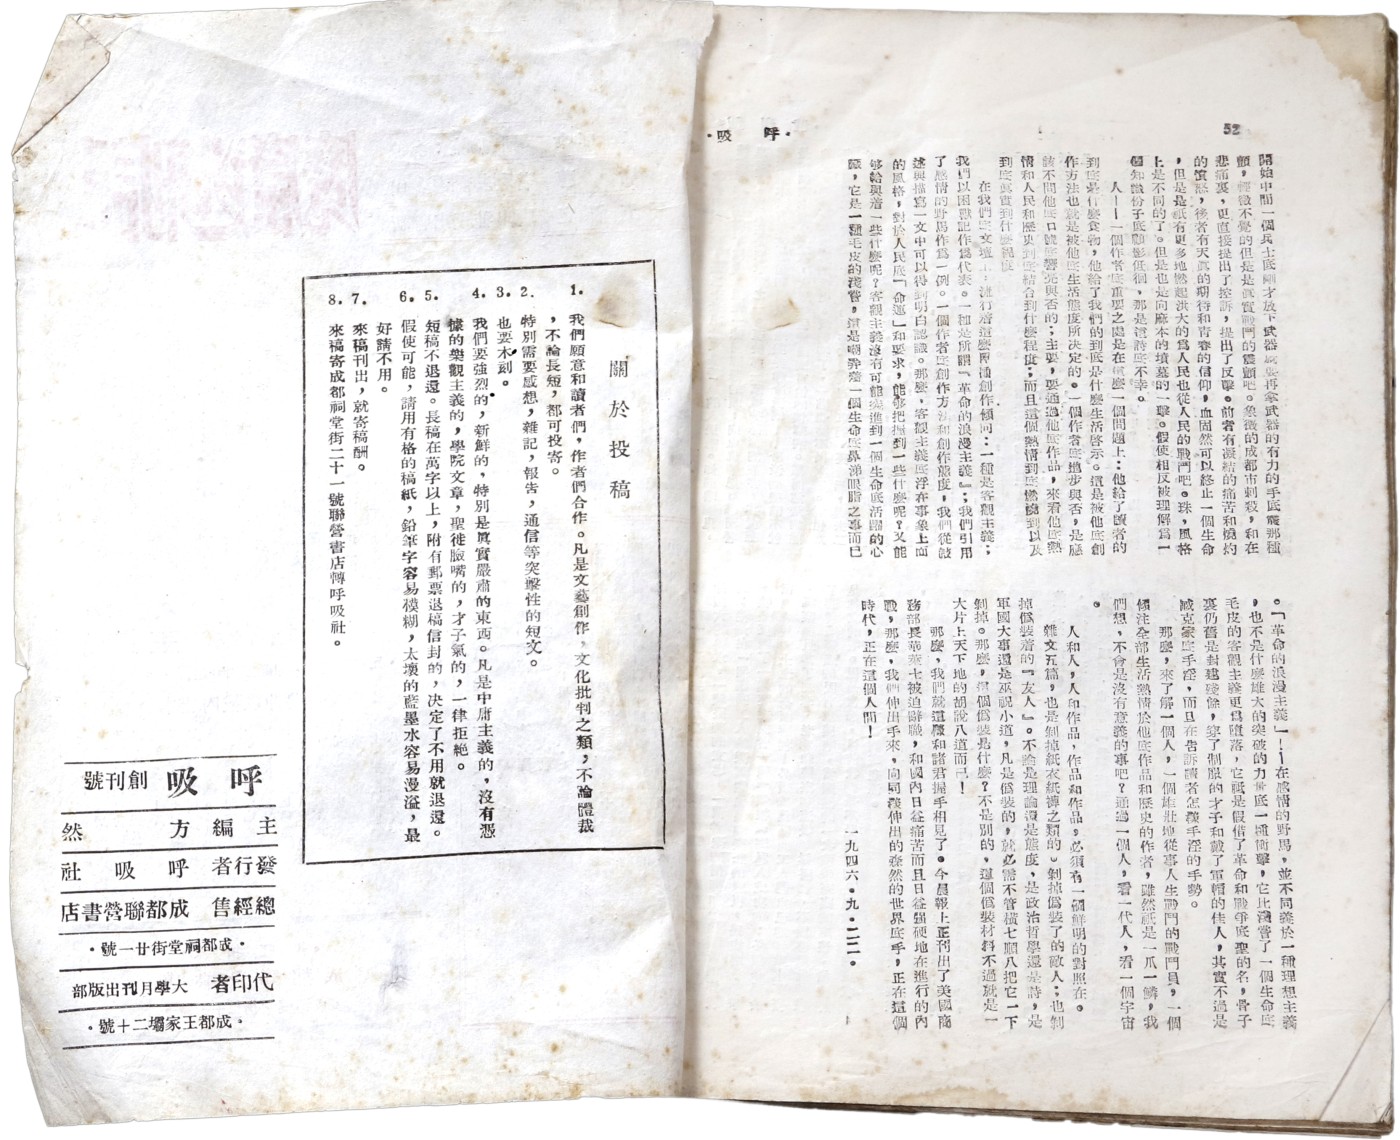 52
·呼吸·
開始中間一個兵士底剛才放下武器或要再拿武器的有力的手底震那種
顫,輕微不覺的但是是眞實戰鬥的震顫吧。象徵的成都市刺殺,和在
悲痛裏,更直接提出了控訴,提出了反擊。前者有凝結的痛苦和燒灼
的憤怒,後者有天眞的期待和青春的信仰,血固然可以終止一個生命
,但是是祇有更多地燃起洪大的爲人民也從人民的戰鬥吧。珠,風格
上是不同的了。但是也是向麻木的墳墓的一擊。假使相反被理解爲一
個知識份子底顧影低徊,那是這詩底不幸。
人——一個作者底重要之處是在這麼一個問題上:他給了讀者的
到底是什麼食物,他給了我們的到底是什麼生活啓示。這是被他底創
作方法也就是被他底生活態度所決定的。一個作者底地步與否,是應
該不問他底口號底響亮與否的;主要,要通過他底作品,來看他底熱
情和人民和歷史到底結合到什麼程度;而且這個熱情到底燃燒到以及
到底眞實到什麼程度
在我們底文壇上,流行着這麼兩種創作傾向:一種是客觀主義;
我們以困獸記作爲代表。一種是所謂『革命的浪漫主義』;我們引用
了感情的野馬作爲一例。一個作者底創作方法和創作態度,我們從敍
述與描寫一文中可以得到明白認識。那麼,客觀主義底浮在事象上面
的風格,對於人民底「命運」和要求,能够把握到一些什麼呢?又能
够給與着一些什麼呢?客觀主義沒有可能突進到一個生命底活躍的心
臟,它是一種毛皮的淺嘗,這是嘲弄着一個生命底鼻涕眼脂之事而已
。「革命的浪漫主義」!——在感情的野馬,並不同義於一種理想主義
,也不是什麼雄大的突破的力量底一種衝擊,它比淺嘗了一個生命底
毛皮的客觀主義更爲墮落,它祗是假借了革命和戰爭底聖的名,骨子
裏仍舊是封建殘餘,穿了制服的才子和戴了軍帽的佳人,其實不過是
臧克家底手淫,而且在告訴讀者怎樣手淫的手勢。
那麼,來了解一個人,一個雄壯地從事人生戰鬥的戰鬥員,一個
傾注全部生活熱情於他底作品和歷史的作者,雖然祇是一爪一鱗,我
們想,不會是沒有意義的事吧?通過一個人,看一代人,看一個宇宙
。
人和人,人印作品,作品和作品,必須有一個鮮明的對照在。
雜文五篇,也是剝掉紙衣紙褲之類的。剝掉僞裝了的敵人;也剝
掉僞裝着的『友人』。不論是理論還是態度,是政治哲學還是詩,是
軍國大事還是巫祝小道,凡是僞裝的,就必需不管橫七順八把它一下
剝掉。那麼,這個僞裝是什麼?不是別的,這個僞裝材料不過就是一
大片上天下地的胡說八道而已!
那麼,我們就這樣和諸君握手相見了。今晨報上正刊出了美國商
務部長華萊士被迫辭職,和國內日益痛苦而且日益强硬地在進行的內
戰,那麼,我們伸出手來,向同樣伸出的森然的世界底手,正在這個
時代,正在這個人間!
一九四六·九·二二。
關於投稿
1. 我們願意和讀者們,作者們合作。凡是文藝創作,文化批判之類,不論體裁
,不論長短,都可投寄。
2. 特別需要感想,雜記,報告,通信等突擊性的短文。
3. 也要木刻。
4. 我們要强烈的,新鮮的,特別是眞實嚴肅的東西。凡是中庸主義的,沒有憑
據的樂觀主義的,學院文章,聖徒臉嘴的,才子氣的,一律拒絕。
5. 短稿不退還。長稿在萬字以上,附有郵票退稿信封的,決定了不用就退還。
6. 假使可能,請用有格的稿紙,鉛筆字容易模糊,太壞的藍墨水容易漫溢,最
好請不用。
7. 來稿刊出,就寄稿酬。
8. 來稿寄成都祠堂街二十一號聯營書店轉呼吸社。
呼吸 創刊號
主編 方然
發行者 呼吸社
總經售 成都聯營書店
·成都祠堂街廿一號·
代印者 大學月刊出版部
·成都王家壩二十號·